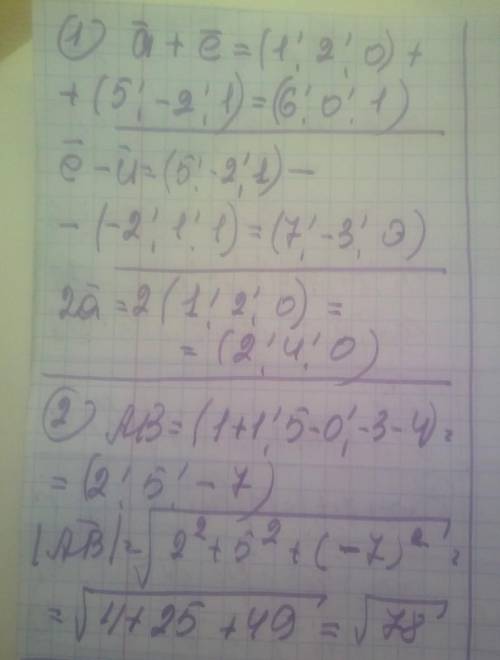 ① a̅ + e̅ = (1; 2; 0) +
+ (5; -2; 1) = (6; 0; 1)
e̅ - u̅ = (5; -2; 1) -
- (-2; 1; 1) = (7; -3; 0)
2a̅ = 2 (1; 2; 0) =
= (2; 4; 0)
② AB = (1+1; 5-0; -3-4) =
= (2; 5; -7)
|AB| = √2² + 5² + (-7)² =
= √4 + 25 + 49 = √78